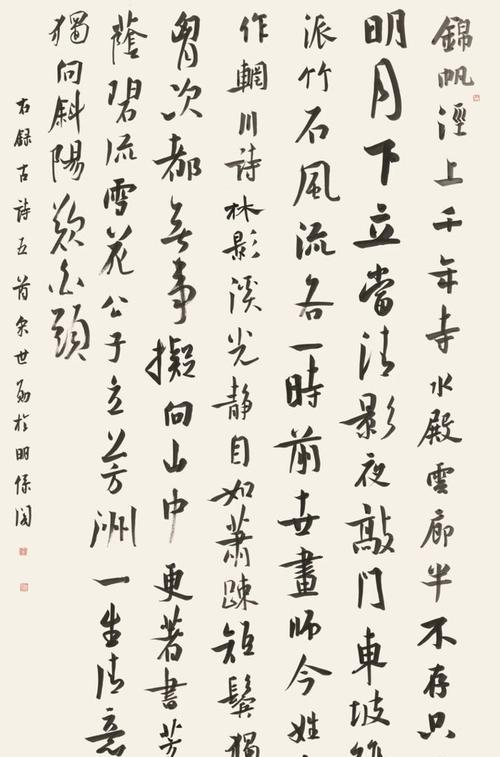 錦帆涇上千年寺水殿雲廊半不存只
明月下立當清影夜敲門東坡
派竹石風流各一時前世畫師今姓
作輞川詩林影溪光靜自如蕭疎短鬢獨
胸次都無事擬向山中更著書芳
蔭碧流雪花公子立芳洲一生清意
獨向斜陽歎白頭
右録古詩五首 世 於明